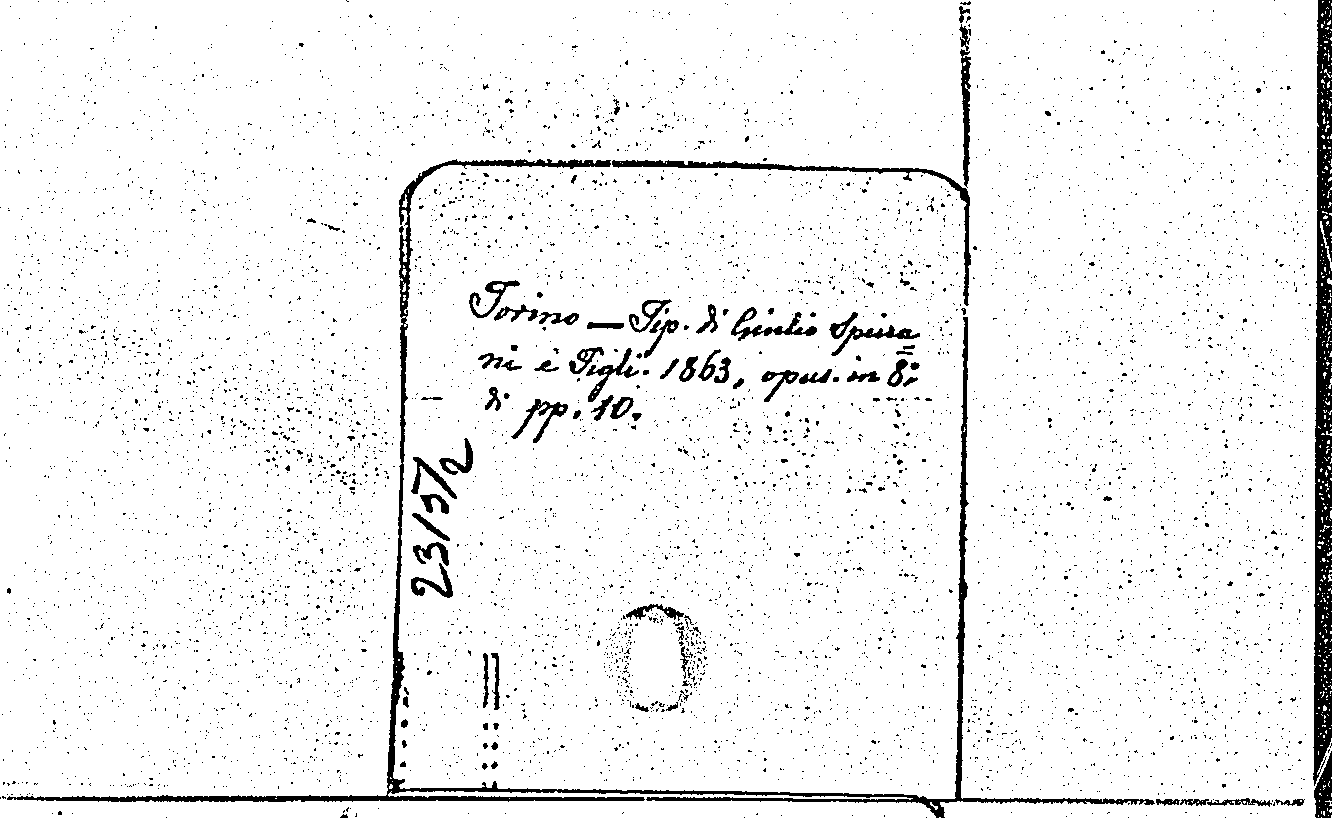 Torino — Tip. di Giulio Speira=
ni e Figli. 1863, opus. in 8:
di pp. 10.
23/5/2